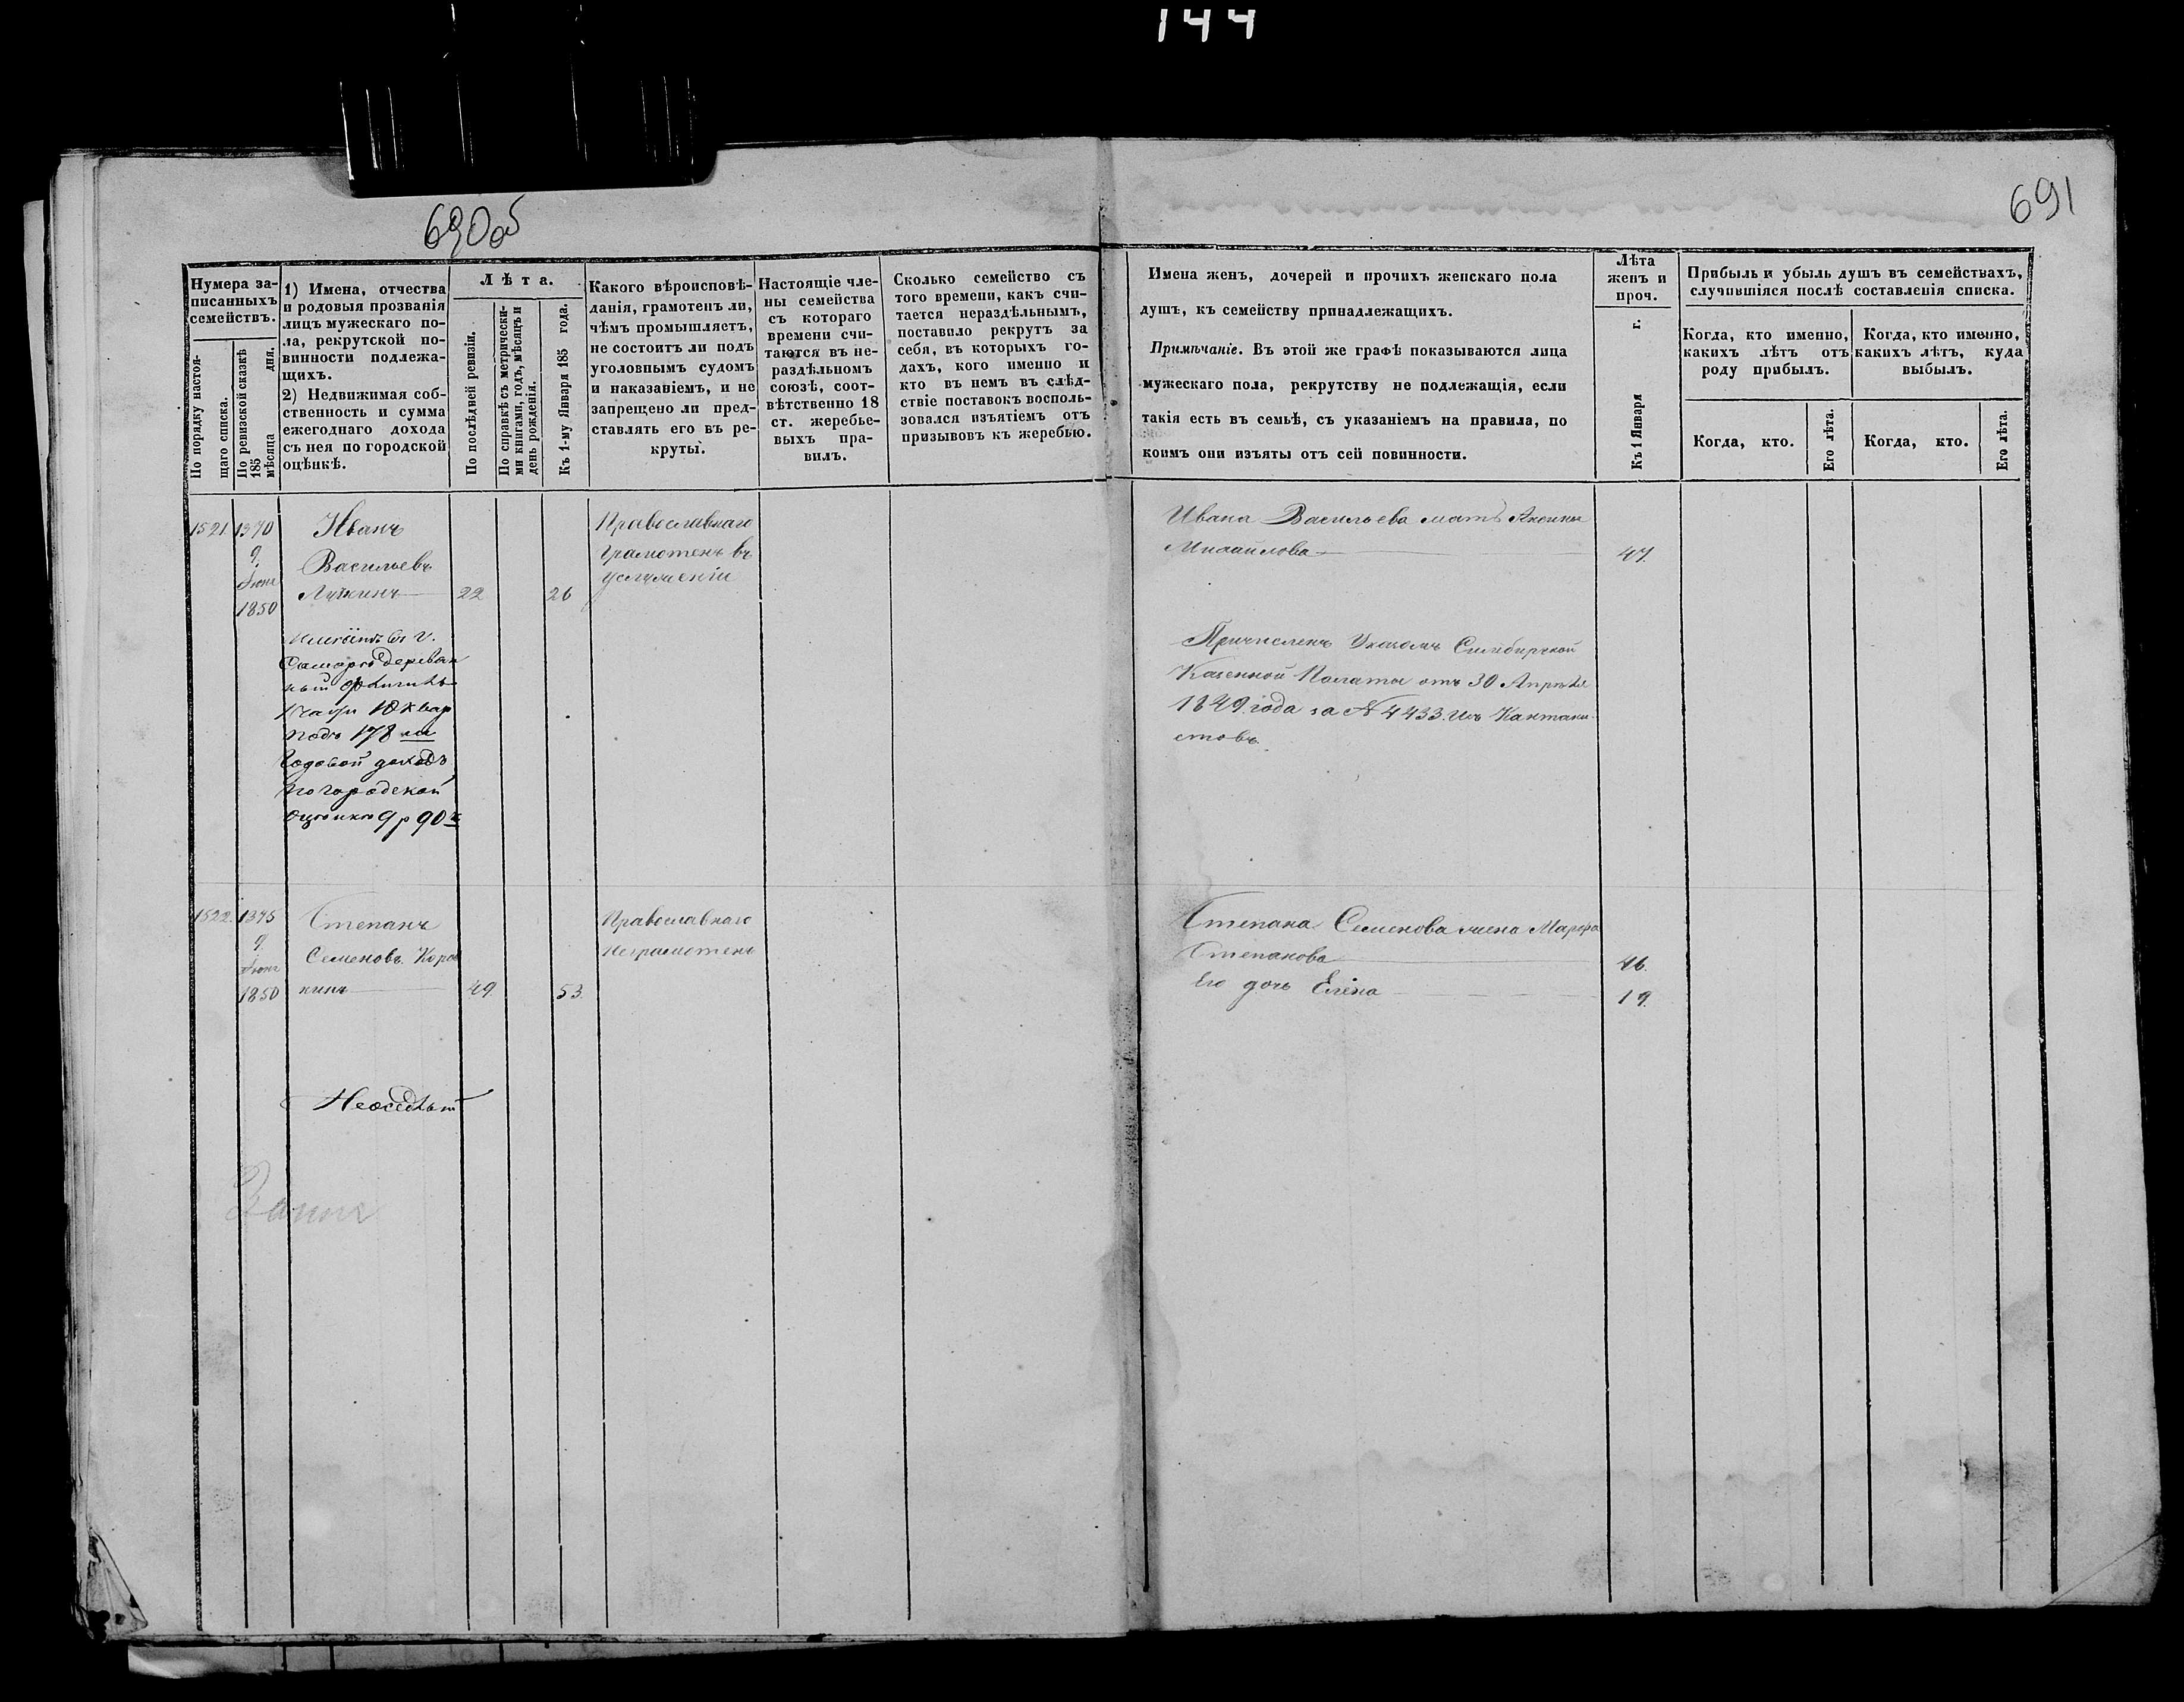 144
690об
691
Нумера за-
писанныхъ
семействъ.
По порядку настоя-
щаго списка.
По ревизской сказкѣ
185 мѣсяца дня.
1) Имена, отчества
и родовыя прозванія
лицъ мужескаго по-
ла, рекрутской по-
винности подлежа-
щихъ.
2) Недвижимая соб-
ственность и сумма
ежегоднаго дохода
съ нея по городской
оцѣнкѣ.
Лѣта.
По послѣдней ревизіи.
По справкѣ съ метрически-
ми книгами, годъ, мѣсяцъ и
день рожденія.
Къ 1-му Января 185 года.
Какого вѣроисповѣ-
данія, грамотенъ ли,
чѣмъ промышляетъ,
не состоитъ ли подъ
уголовнымъ судомъ
и наказаніемъ, и не
запрещено ли пред-
ставлять его въ ре-
круты.
Настоящіе чле-
ны семейства
съ котораго
времени счи-
таются въ не-
раздѣльномъ
союзѣ, соот-
вѣтственно 18
ст. жеребье-
выхъ пра-
вилъ.
Сколько семейство съ
того времени, какъ счи-
тается нераздѣльнымъ,
поставило рекрутъ за
себя, въ которыхъ го-
дахъ, кого именно и
кто въ немъ въ слѣд-
ствіе поставокъ восполь-
зовался изъятіемъ отъ
призывовъ къ жеребью.
Имена женъ, дочерей и прочихъ женскаго пола
душъ, къ семейству принадлежащихъ.
Примѣчаніе. Въ этой же графѣ показываются лица
мужескаго пола, рекрутству не подлежащія, если
такія есть въ семьѣ, съ указаніемъ на правила, по
коимъ они изъяты отъ сей повинности.
Лѣта
женъ и
проч.
Къ 1 Января г.
Прибыль и убыль душъ въ семействахъ,
случившіяся послѣ составленія списка.
Когда, кто именно,
какихъ лѣтъ отъ
роду прибылъ.
Когда, кто именно,
какихъ лѣтъ, куда
выбылъ.
Когда, кто.
Его лѣта.
Когда, кто.
Его лѣта.
1521. 1370
9.
Июня
1850
Иванъ
Васильевъ
22 26
Православнаго
Грамотенъ въ
услуженіи
Ивана Васильева мать Аксинья
Михайлова 47.
Имѣетъ въ г.
Самарѣ деревян
ный
Части 18 квар
подъ 178 №
Годовой доходъ
по городской
оцѣнкѣ 9 р 90 к
Причисленъ Указомъ Симбирской
Казенной Палаты отъ 30 Апрѣля
1849. года за № 4433. Изъ Кантони
стовъ.
1522. 1375
9.
Июня
1850
Степанъ
Семеновъ
49. 53.
Православнаго
Неграмотенъ
Степана Семенова жена Марфа
Степанова 46.
Его дочь Елена 19.
Неоседлый